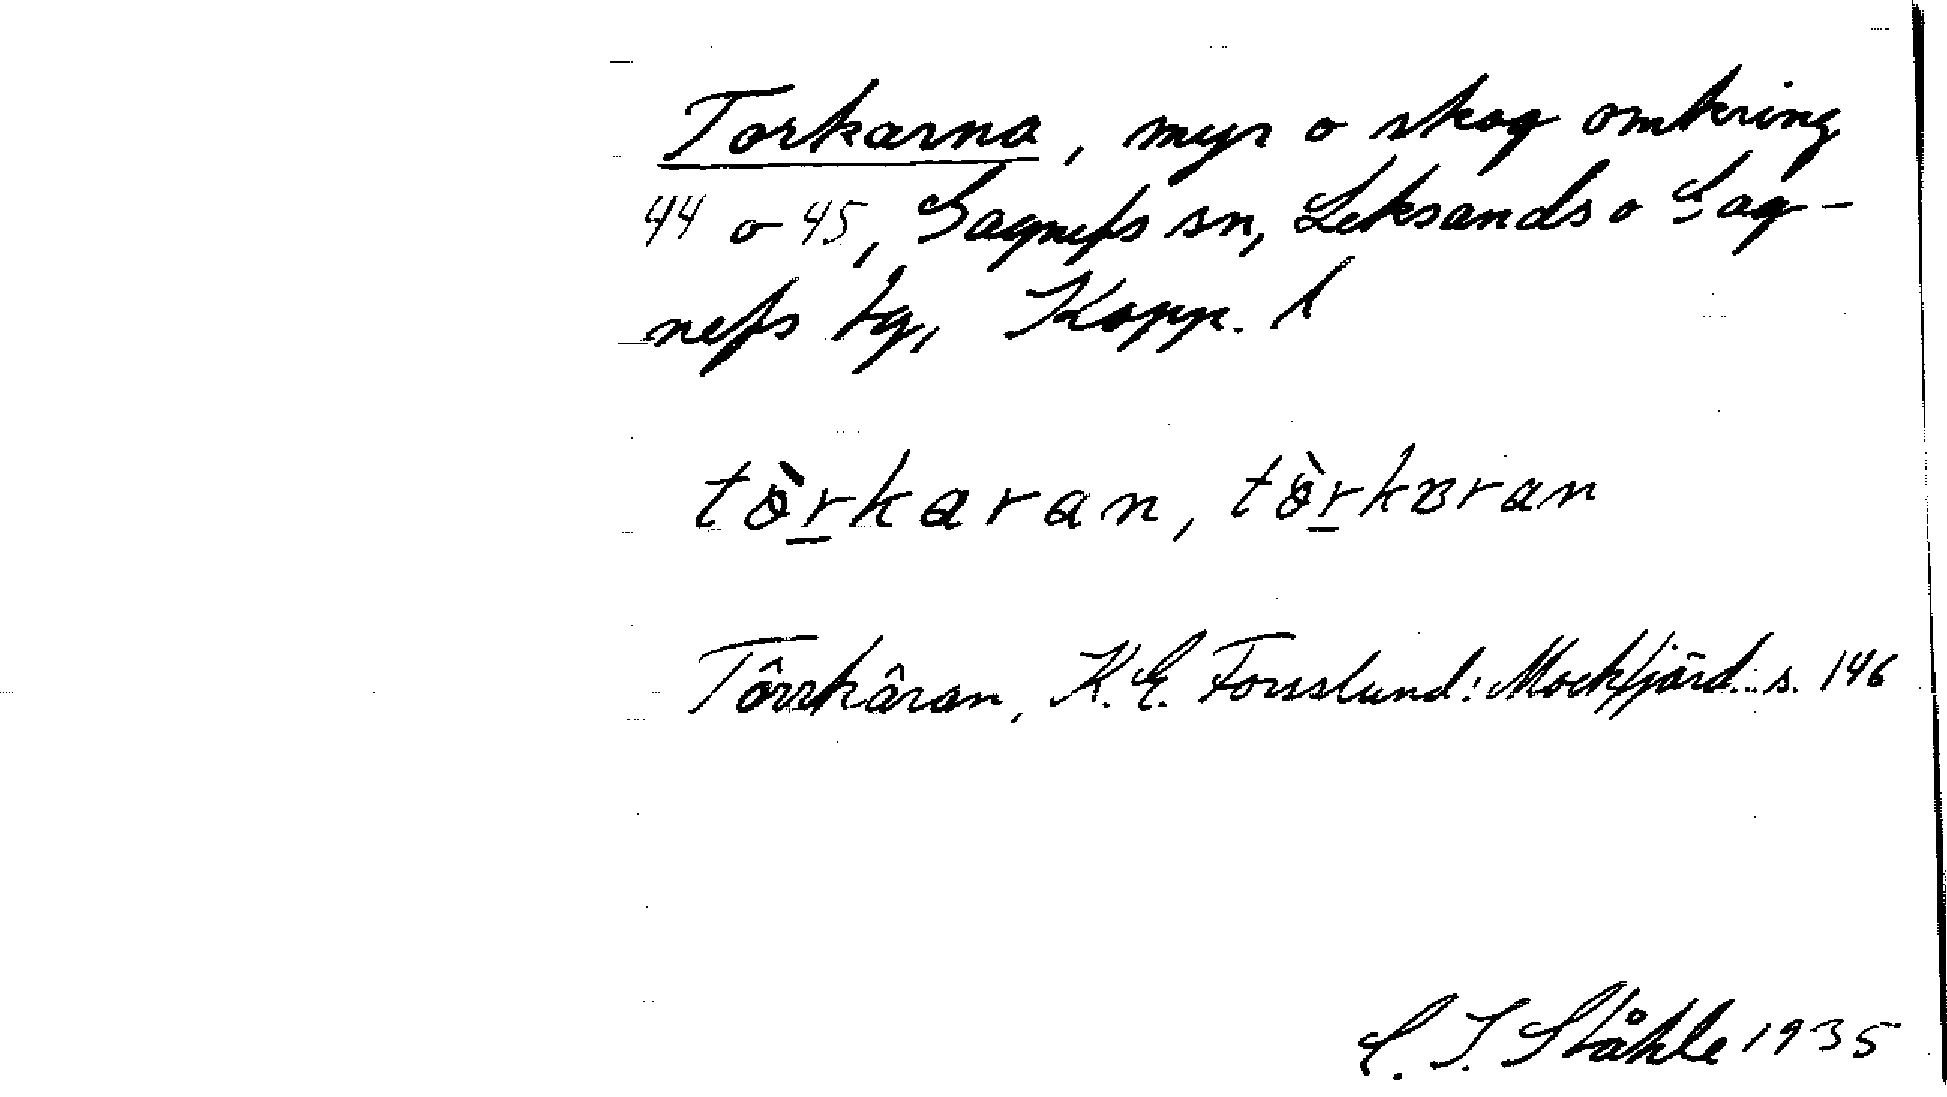 Torkarna, myr o skog omkring
44 o 45, Gagnefs sn, Leksands o Gag-
nefs tg, Kopp. l
tò̱rkaran, tò̱rkɐran
Tôrrkâran, K.E. Forsslund: Mockfjärd.. s. 146
C. I. Ståhle 1935